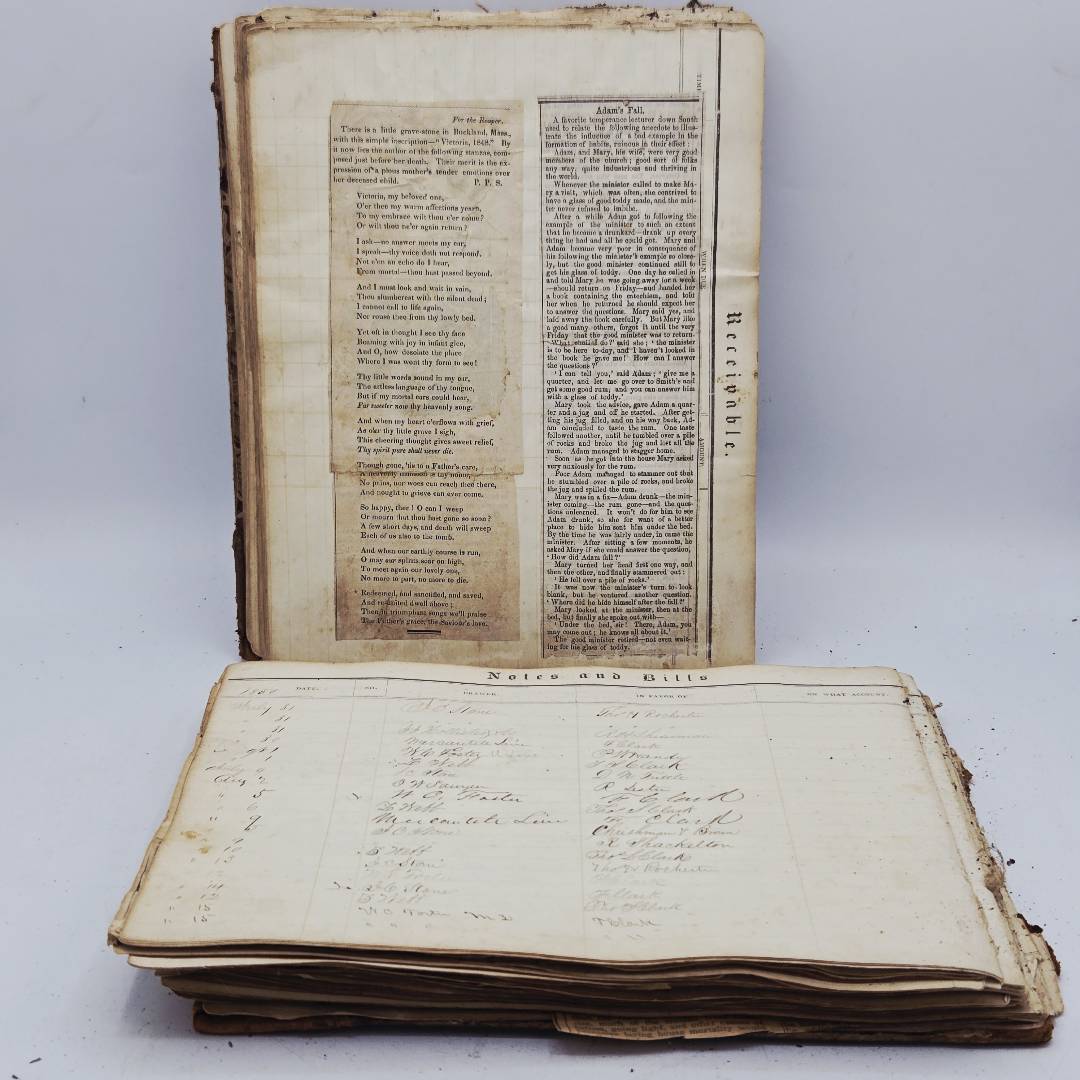 For the Reaper.
There is a little grave-stone in Buckland, Mass.,
with this simple inscription—"Victoria, 1848." By
it now lies the author of the following stanzas, com-
posed just before her death. Their merit is the ex-
pression of a pious mother's tender emotions over
her deceased child. P. P. S.
Victoria, my beloved one,
O'er thee my warm affections yearn,
To my embrace wilt thou e'er come?
Or wilt thou ne'er again return?
I ask—no answer meets my ear,
I speak—thy voice doth not respond,
Not e'en an echo do I hear,
From mortal—thou hast passed beyond.
And I must look and wait in vain,
Thou slumberest with the silent dead;
I cannot call to life again,
Nor rouse thee from thy lowly bed.
Yet oft in thought I see thy face
Beaming with joy in infant glee,
And O, how desolate the place
Where I was wont thy form to see!
Thy little words sound in my ear,
The artless language of thy tongue,
But if my mortal ears could hear,
Far sweeter now thy heavenly song.
And when my heart o'erflows with grief,
As o'er thy little grave I sigh,
This cheering thought gives sweet relief,
Thy spirit pure shall never die.
Though gone, 'tis to a Father's care,
A heavenly mansion is thy home,
No pains, nor woes can reach thee there,
And nought to grieve can ever come.
So happy, there! O can I weep
Or mourn that thou hast gone so soon?
A few short days, and death will sweep
Each of us also to the tomb.
And when our earthly course is run,
O may our spirits soar on high,
To meet again our lovely one,
No more to part, no more to die.
Redeemed, and sanctified, and saved,
And re-united dwell above;
Then in triumphant songs we'll praise
The Father's grace, the Saviour's love.
Adam's Fall.
A favorite temperance lecturer down South
used to relate the following anecdote to illus-
trate the influence of a bad example in the
formation of habits, ruinous in their effect:
Adam, and Mary, his wife, were very good
members of the church; good sort of folks
any way, quite industrious and thriving in
the world.
Whenever the minister called to make Ma-
ry a visit, which was often, she contrived to
have a glass of good toddy made, and the min-
ister never refused to imbibe.
After a while Adam got to following the
example of the minister to such an extent
that he became a drunkard—drank up every
thing he had and all he could get. Mary and
Adam became very poor in consequence of
his following the minister's example so close-
ly, but the good minister continued still to
get his glass of toddy. One day he called in
and told Mary he was going away for a week
—should return on Friday—and handed her
a book containing the catechism, and told
her when he returned he should expect her
to answer the questions. Mary said yes, and
laid away the book carefully. But Mary like
a good many others, forgot it until the very
Friday that the good minister was to return.
'What shall I do?' said she; 'the minister
is to be here to-day, and I haven't looked in
the book he gave me! How can I answer
the questions?'
'I can tell you,' said Adam; 'give me a
quarter, and let me go over to Smith's and
get some good rum, and you can answer him
with a glass of toddy.'
Mary took the advice, gave Adam a quar-
ter and a jug and off he started. After get-
ting his jug filled, and on his way back, Ad-
am concluded to taste the rum. One taste
followed another, until he tumbled over a pile
of rocks and broke the jug and lost all the
rum. Adam managed to stagger home.
Soon as he got into the house Mary asked
very anxiously for the rum.
Poor Adam managed to stammer out that
he stumbled over a pile of rocks, and broke
the jug and spilled the rum.
Mary was in a fix—Adam drunk—the min-
ister coming—the rum gone—and the ques-
tions unlearned. It won't do for him to see
Adam drunk, so she for want of a better
place to hide him sent him under the bed.
By the time he was fairly under, in came the
minister. After sitting a few moments, he
asked Mary if she could answer the question,
'How did Adam fall?'
Mary turned her head first one way, and
then the other, and finally stammered out:
'He fell over a pile of rocks.'
It was now the minister's turn to look
blank, but he ventured another question.
'Where did he hide himself after the fall?'
Mary looked at the minister, then at the
bed, but finally she spoke out with—
'Under the bed, sir! There, Adam, you
may come out; he knows all about it.'
The good minister retired—not even wait-
ing for his glass of toddy.
TIME
WHEN DUE.
AMOUNT.
Receivable.
Notes and Bills
DATE. NO. DRAWER. IN FAVOR OF ON WHAT ACCOUNT.
July 31 Thos H Rochester
31
Mercantile Line F Clark
W C Foster
Aug 2
" 5 W. C. Foster F Clark
" 6 D Webb Thos S Clark
" 9 Mercantile Line F Clark
Chushman & Brown
R Shackelton
" 13 D Webb Thos S Clark
Thos H Rochester
F Clark
" 15 F Clark
" " " " "